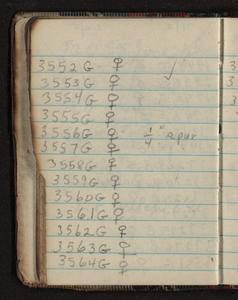 3552G ♀
3553G ♀
3554G ♀
3555G ♀
3556G ♀ 1/4"
3557G ♀
3558G ♀
3559G ♀
3560G ♀
3561G ♀
3562G ♀
3563G ♀
3564G ♀